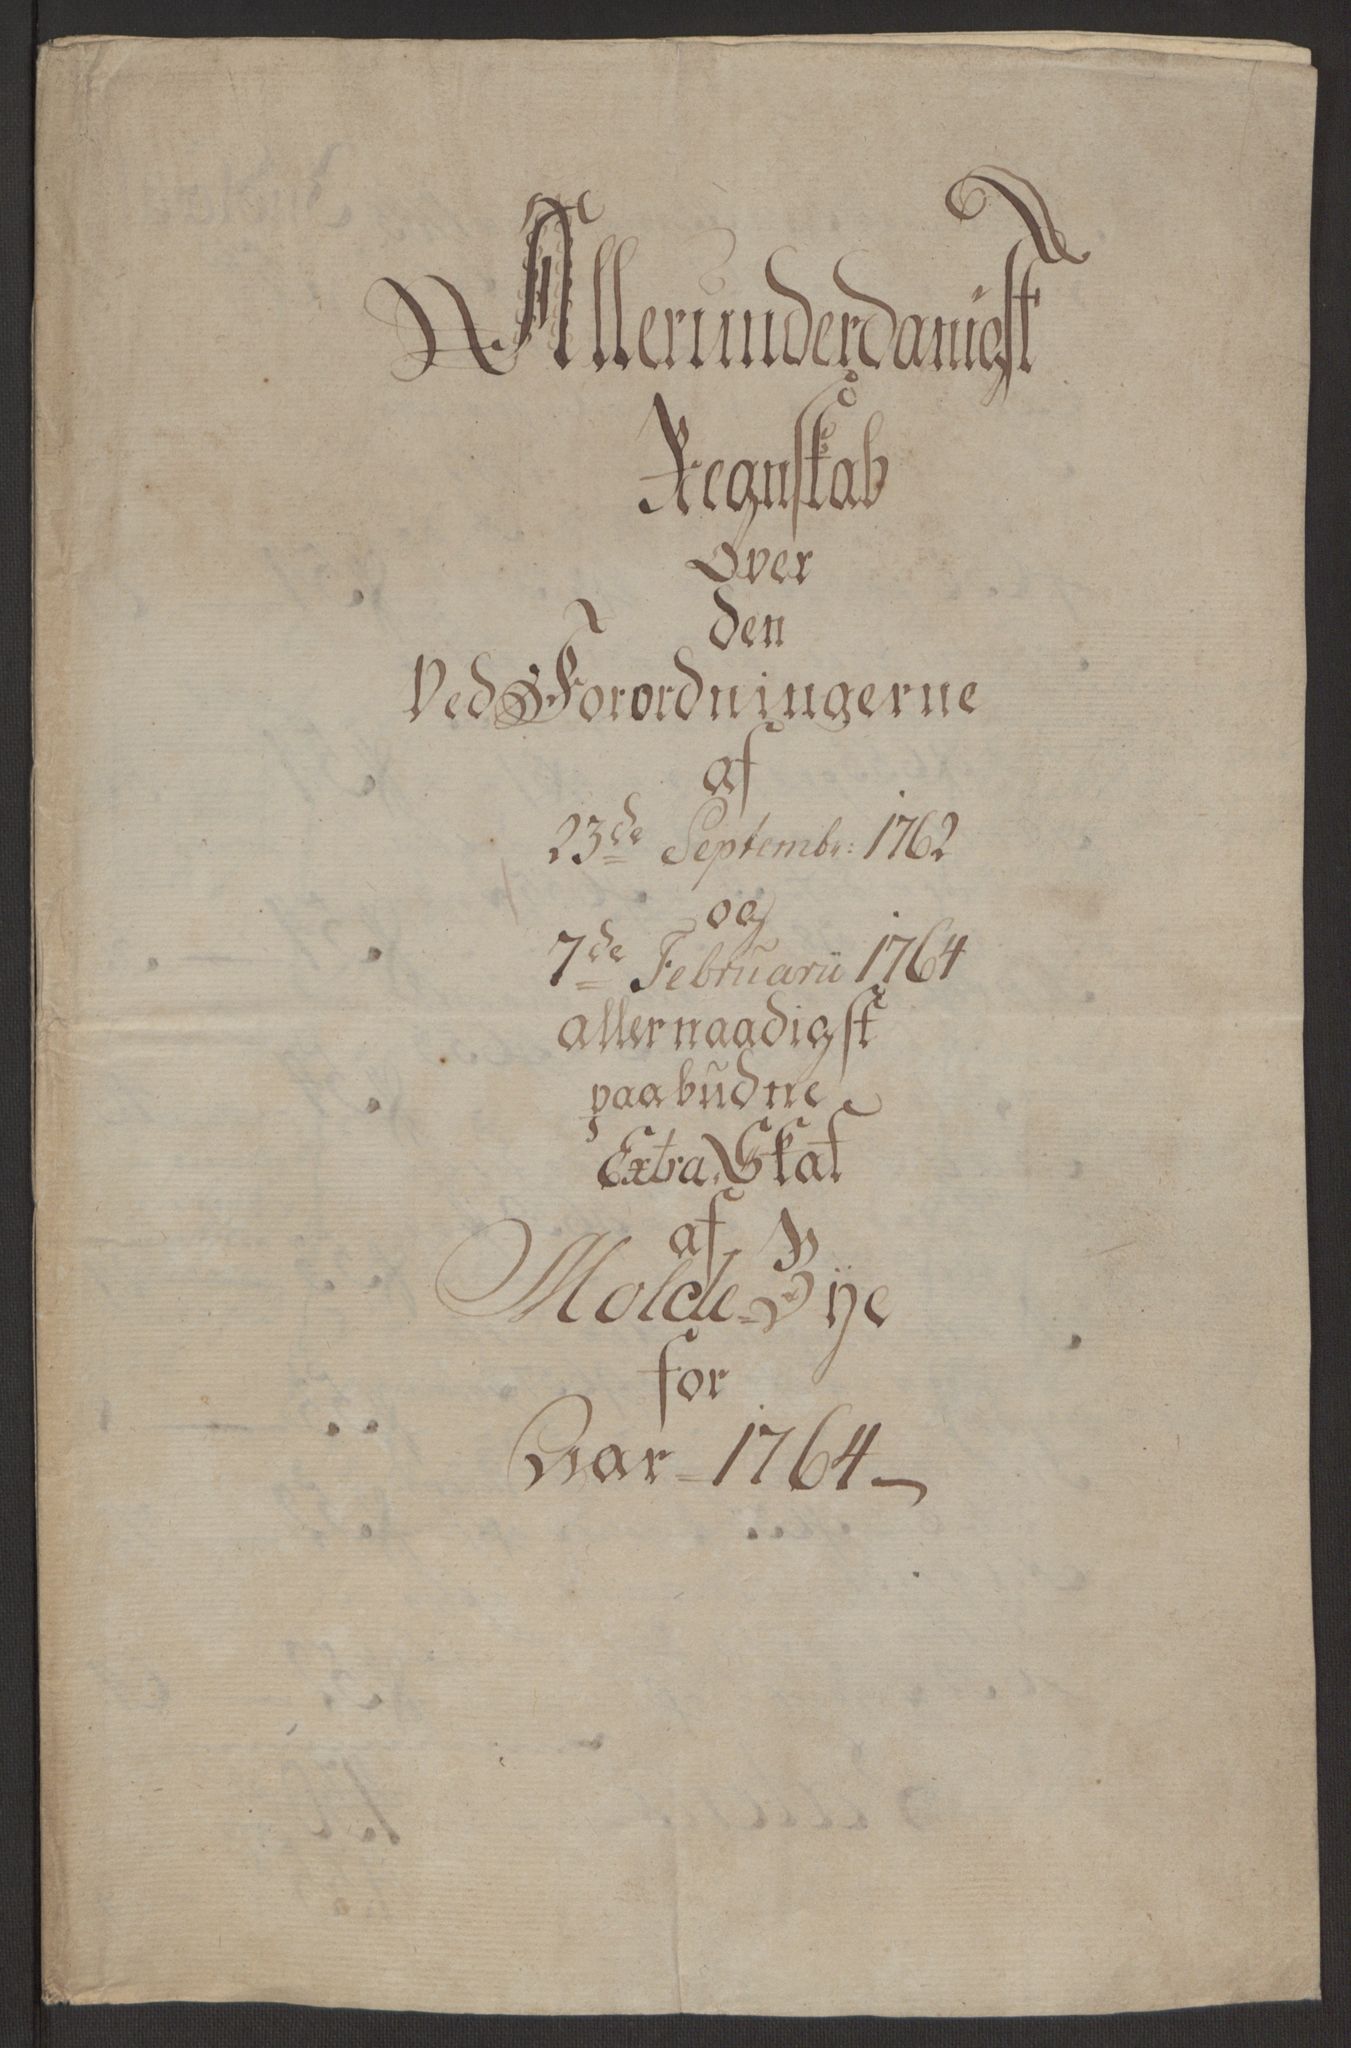 Allerunderdanigst
Regnskab
Over
den
Ved Forordningerne
af
23de Septembr: 1762
og
7de Februarii 1764
allernaadigst
paabudne
Extra Skat
af
Molde Bÿe
for
Aar 1764